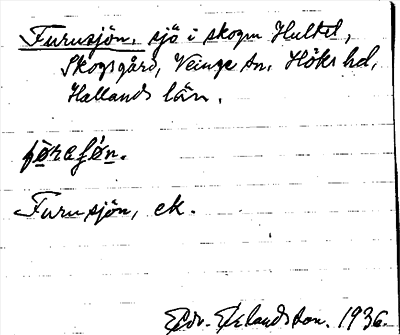 Furusjön, sjö i skogen Hultet,
Skogsgård, Veinge sn, Höks hd,
Hallands län.
førasǿn.
Furusjön, ek.
Edv. Erlandsson. 1936.